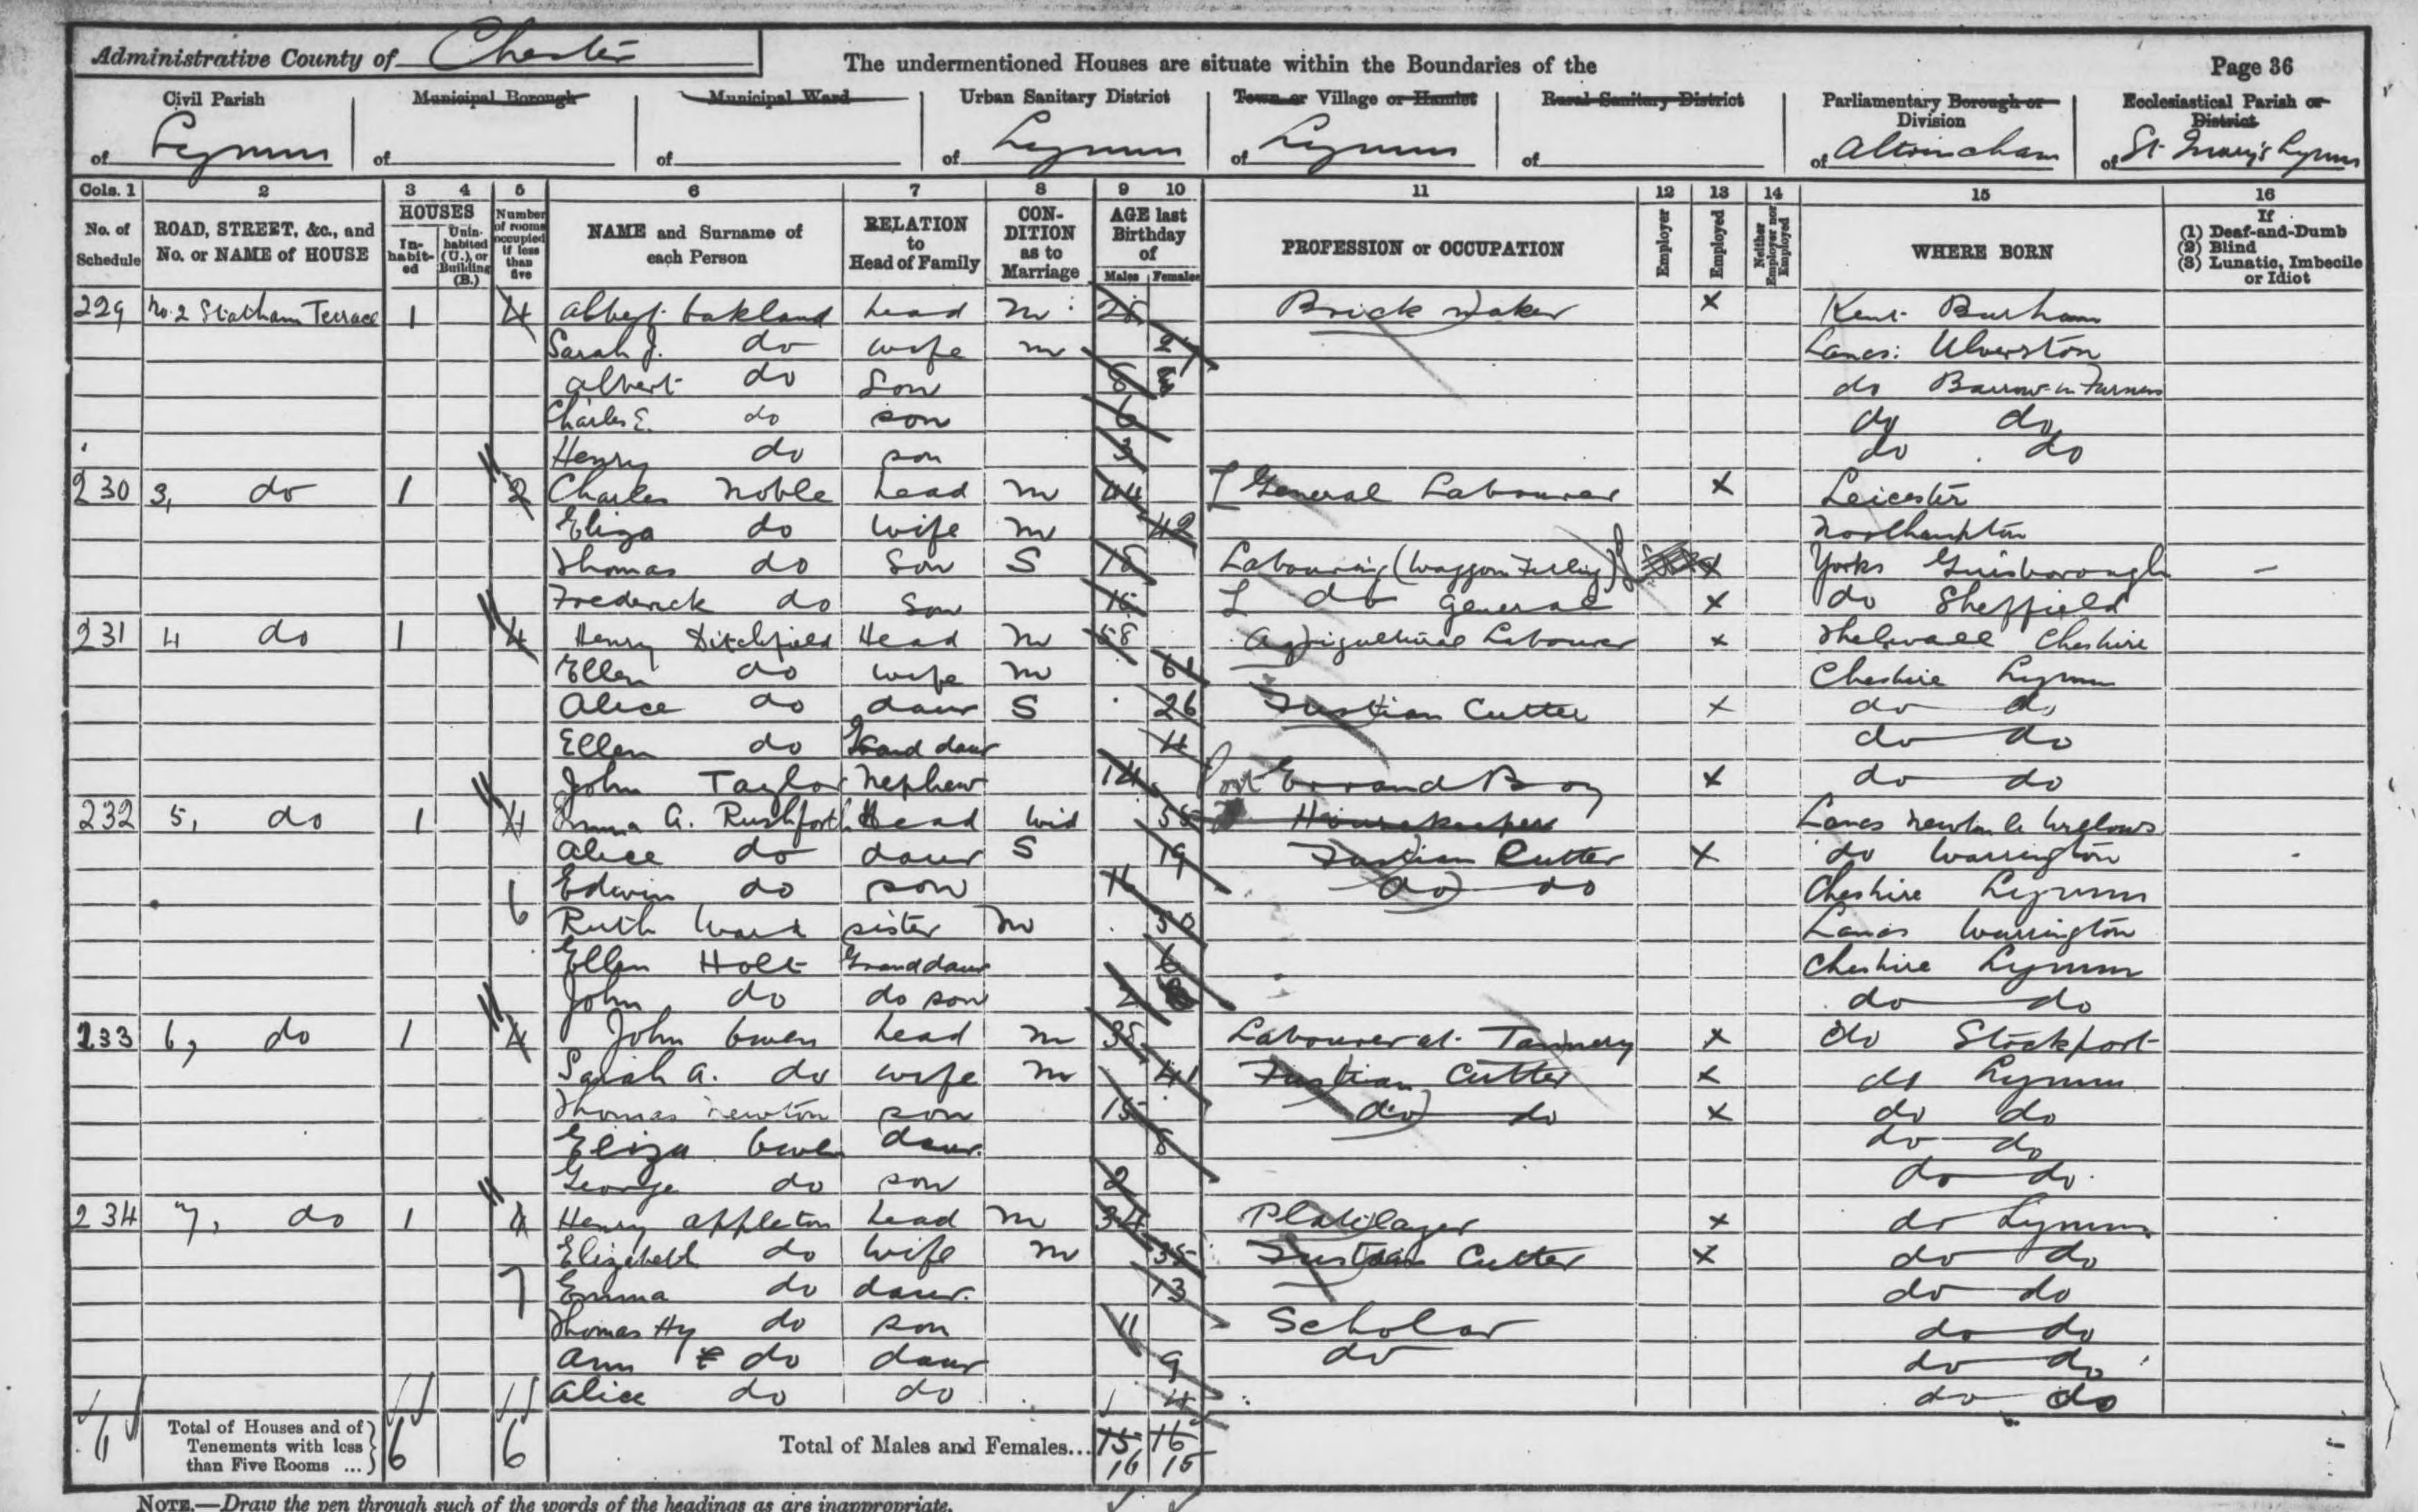 Administrative County of Chester
The undermentioned Houses are situate within the Boundaries of the
Page 36
Civil Parish of Lymm
Municipal Borough of
Municipal Ward of
Urban Sanitary District of Lymm
Town or Village or Hamlet of Lymm
Rural Sanitary District of
Parliamentary Borough or Division of Altrincham
Ecclesiastical Parish or District of St Mary's Lymm
Cols. 1 2 3 4 5 6 7 8 9 10 11 12 13 14 15 16
No. of Schedule
ROAD, STREET, &c., and No. or NAME of HOUSE
HOUSES
In-habit-ed
Unin-habited (U.), or Building (B.)
Number of rooms occupied if less than five
NAME and Surname of each Person
RELATION to Head of Family
CON-DITION as to Marriage
AGE last Birthday of
Males Females
PROFESSION or OCCUPATION
Employer
Employed
Neither Employer nor Employed
WHERE BORN
If (1) Deaf-and-Dumb (2) Blind (3) Lunatic, Imbecile or Idiot
229 No. 2 Statham Terrace 1 4 Albert Oakland head M Brick Maker X Kent Burham
Sarah J. do wife M Lancs: Ulverston
Albert do Son 8 do Barrow-in-Furness
Charles E. do son 6 do do
Henry do son 3 do do
230 3, do 1 2 Charles Noble head M 44 General Labourer X Leicester
Eliza do wife M 42 Northampton
Thomas do Son S 18 Labouring (Waggon Filling) X Yorks Guisborough
Frederick do Son do General X do Sheffield
231 4 do 1 4 Henry Ditchfield Head M 58 Agrigultural Labourer X Thelwall Cheshire
Ellen do wife M 61 Cheshire Lymm
Alice do daur S 26 Fustian Cutter X do do
Ellen do Grand daur 4 do do
John Taylor Nephew 14 Errand Boy X do do
232 5, do 1 4 Emma A. Rushforth Head Wid 55 Housekeeper Lancs Newton le Willows
Alice do daur S 19 Fustian Cutter X do Warrington
Edwin do son 16 do do Cheshire Lymm
6 Ruth Ward sister M 50 Lancs Warrington
Ellen Holt Granddaur 6 Cheshire Lymm
John do do son 2 do do
233 6, do 1 4 John Owen head M Labourer at Tannery X do Stockport
Sarah A. do wife M 41 Fustian Cutter X do Lymm
Thomas Newton son 15 do do X do do
Eliza Owen daur. 8 do do
George do son 2 do do
234 7, do 1 4 Henry Appleton head M 34 Platelayer X do Lymm
Elizabeth do wife M 35 Fustian Cutter X do do
7 Emma do daur. 13 do do
Thomas Hy do son 11 Scholar do do
Ann E do daur 9 do do do
Alice do do 4 do do
Total of Houses and of Tenements with less than Five Rooms ... 6 6
Total of Males and Females... 15 16
16 15
NOTE.—Draw the pen through such of the words of the headings as are inappropriate.